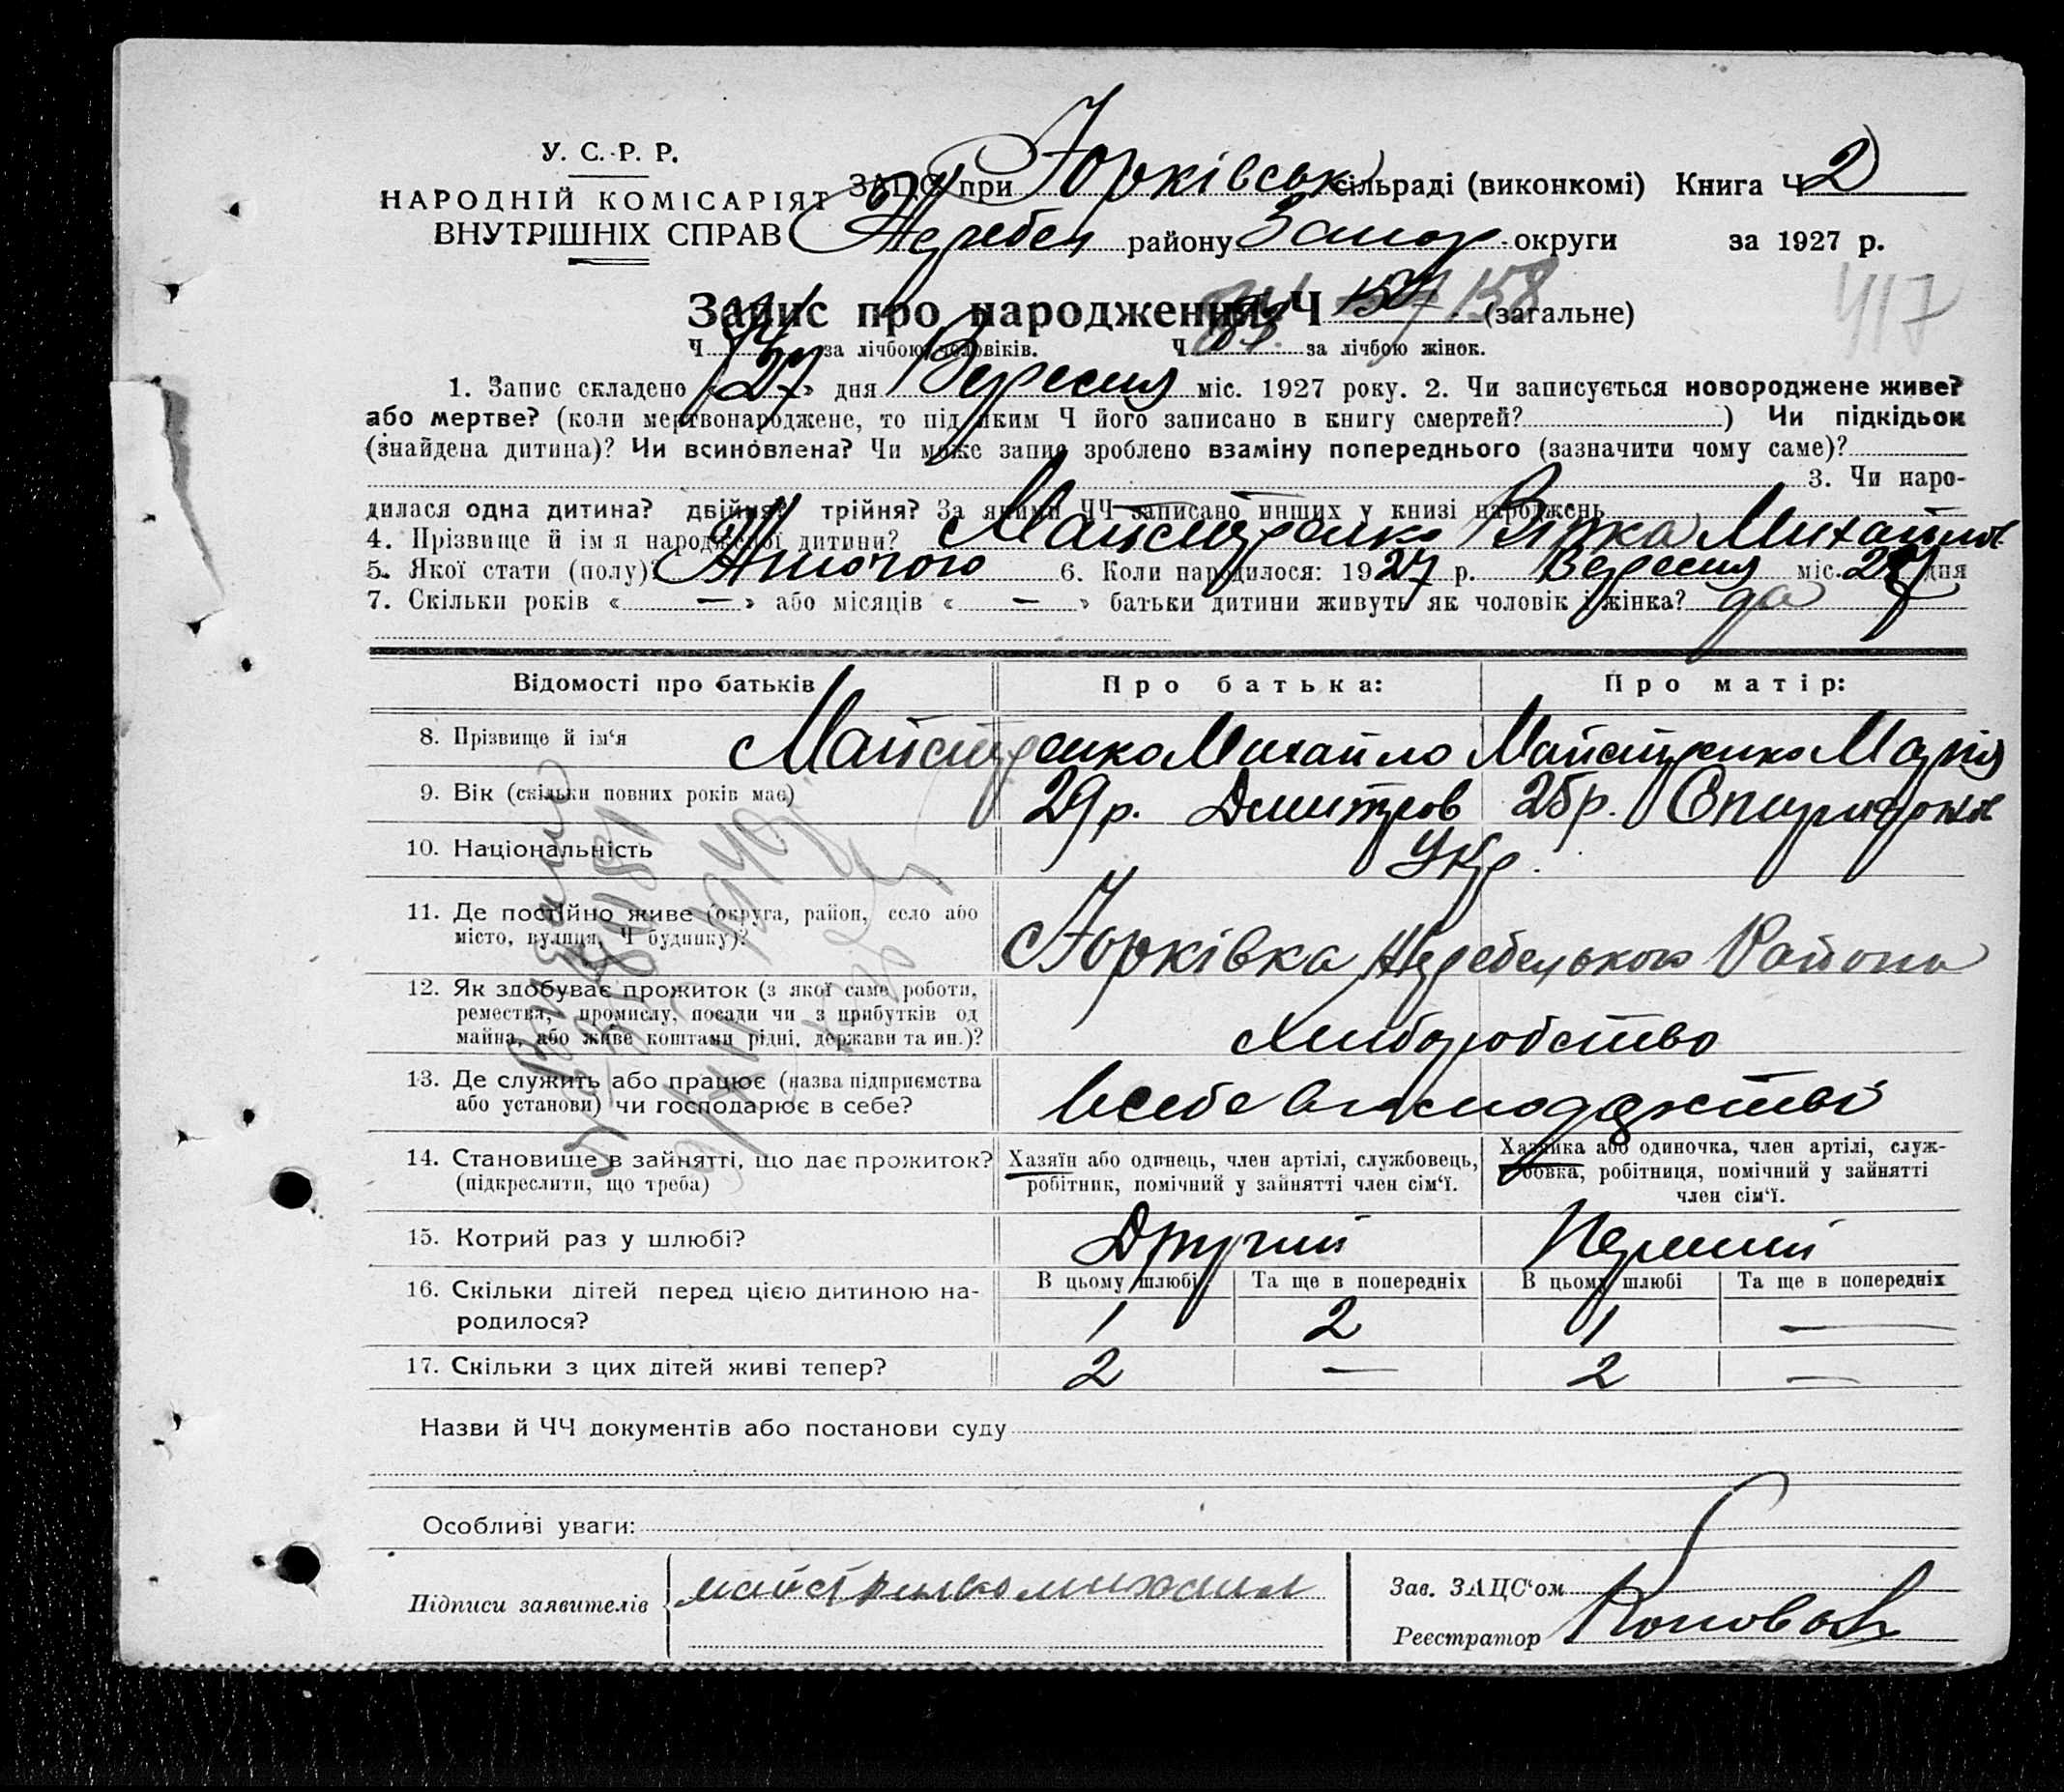 У. С. Р. Р.
НАРОДНІЙ КОМІСАРІЯТ
ВНУТРІШНІХ СПРАВ
ЗАЦС при Юрківськ сільраді (виконкомі) Книга Ч 2
Жеребец району Запор. округи за 1927 р.
Запис про народження Ч 158 (загальне)
417
Ч за лічбою чоловіків. Ч за лічбою жінок.
1. Запис складено «27» дня Вересня міс. 1927 року. 2. Чи записується новороджене живе?
або мертве? (коли мертвонароджене, то під яким Ч його записано в книгу смертей? ) Чи підкідьок
(знайдена дитина)? Чи всиновлена? Чи може запис зроблено взаміну попереднього (зазначити чому саме)?
3. Чи наро-
дилася одна дитина? двійня? трійня? За якими ЧЧ записано инших у книзі народжень
4. Прізвище й ім'я народженої дитини? Майстренко Вірка Михайлов
5. Якої стати (полу)? Жіночого 6. Коли народилося: 1927 р. Вересня міс. дня
7. Скільки років « — » або місяців « — » батьки дитини живуть як чоловік і жінка? да
Відомості про батьків Про батька: Про матір:
8. Прізвище й ім'я Майстренко Михайло Майстренко Марія
9. Вік (скільки повних років має) 29 р. Дмитров 25 р. Спиридонов
10. Національність Укр.
11. Де постійно живе (округа, район, село або
місто, вулиця, Ч будинку)? Юрківка Жеребецького Района
12. Як здобуває прожиток (з якої саме роботи,
ремества, промислу, посади чи з прибутків од
майна, або живе коштами рідні, держави та ин.)? хлиборобство
13. Де служить або працює (назва підприємства
або установи) чи господарює в себе? в себе в господарстві
14. Становище в зайнятті, що дає прожиток?
(підкреслити, що треба)
Хазяїн або одинець, член артілі, службовець,
робітник, помічний у зайнятті член сім'ї.
Хазяйка або одиночка, член артілі, служ-
бовка, робітниця, помічний у зайнятті
член сім'ї.
15. Котрий раз у шлюбі? Другий Перший
16. Скільки дітей перед цією дитиною на-
родилося?
В цьому шлюбі Та ще в попередніх В цьому шлюбі Та ще в попередніх
1 2 1 —
17. Скільки з цих дітей живі тепер? 2 — 2 —
Назви й ЧЧ документів або постанови суду
Особливі уваги:
Підписи заявителів майстренко михаил
Зав. ЗАЦС'ом
Реєстратор